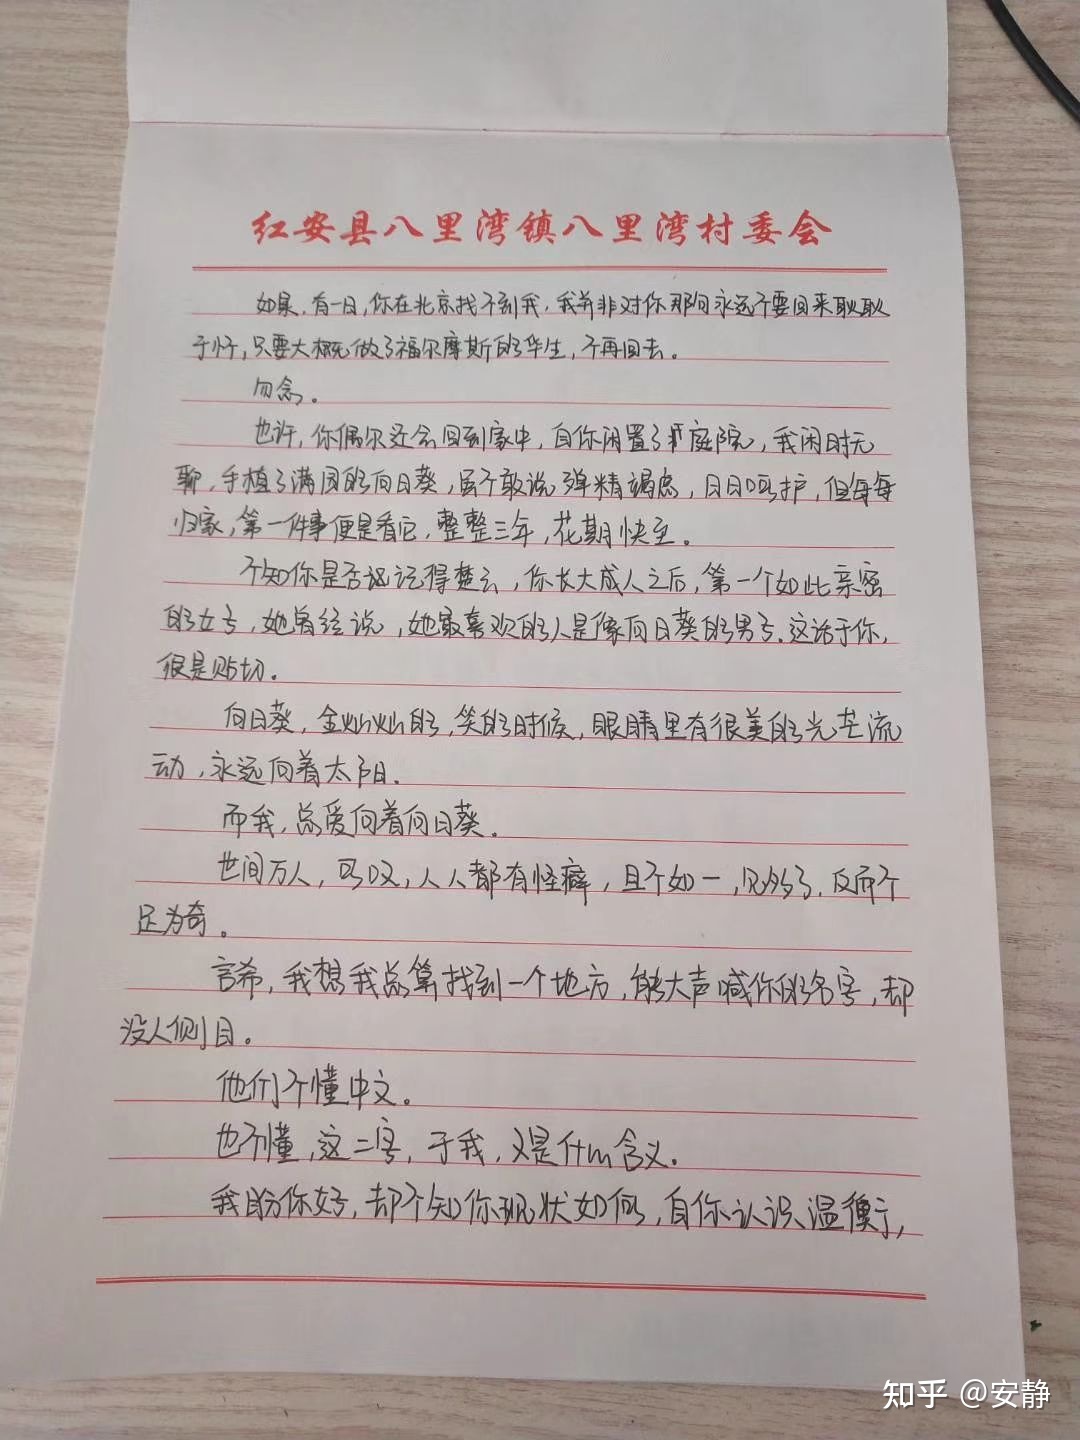 红安县八里湾镇八里湾村委会
如果,有一日,你在北京找不到我,我并非对你那句永远不要回来耿耿
于怀,只要大概做了福尔摩斯的华生,不再回去。
勿念。
也许,你偶尔还会回到家中,自你闲置了庭院,我闲时无
聊,手植了满园的向日葵,虽不敢说殚精竭虑,日日呵护,但每每
归家,第一件事便是看它,整整三年,花期快至。
不知你是否还记得楚云,你长大成人之后,第一个如此亲密
的女子,她曾经说,她最喜欢的人是像向日葵的男子.这话于你,
很是贴切。
向日葵,金灿灿的,笑的时候,眼睛里有很美的光芒流
动,永远向着太阳.
而我,总爱向着向日葵.
世间万人,可叹,人人都有怪癖,且不如一,见多了,反而不
足为奇。
言希,我想我总算找到一个地方,能大声喊你的名字,却
没人侧目。
他们不懂中文。
也不懂,这二字,于我,又是什么含义.
我盼你好,却不知你现状如何,自你认识温衡,
知乎 @安静